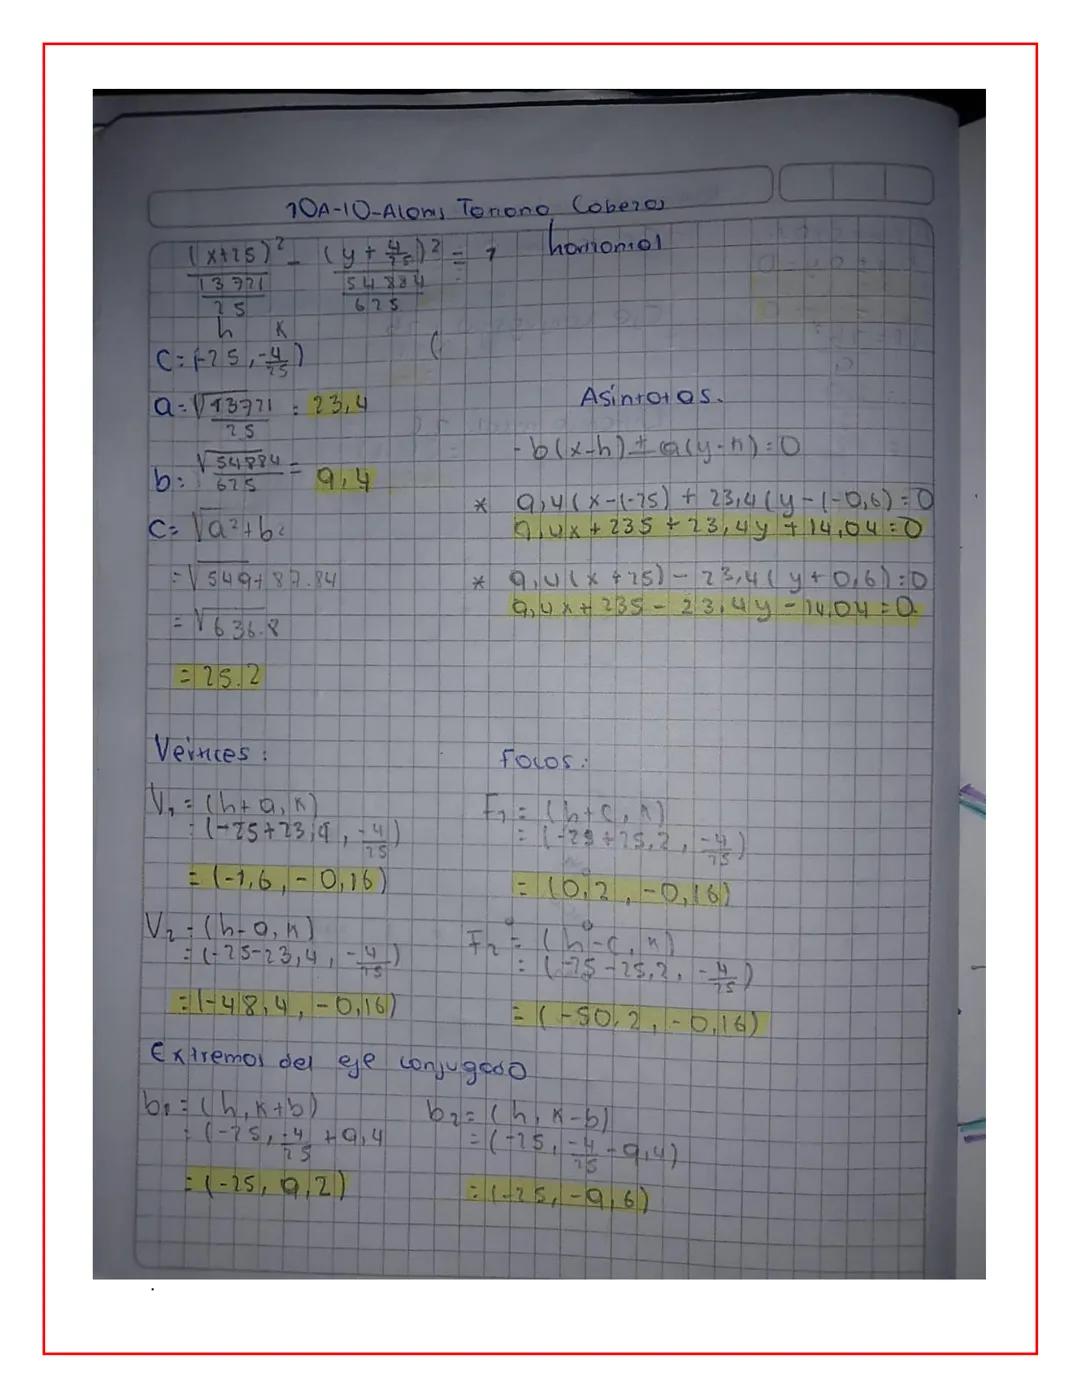 10A-10-Alonis Torrono Coberos
(x+25)² / (13721/25) - (y + 4/25)² / (54884/625) = 1 horizontal
h k
C=(-25, -4/25)
a=√13721/25 = 23,4
b=√54884/625 = 9,4
c= √a²+b²
=√549+87.84
=√636.8
=25.2
Asintotas.
-b(x-h)±a(y-k)=0
* 9,4(x-(-25)+23,4(y-(-0,6)=0
9,4x+235+23,4y+14,04=0
* 9,4(x+25)-23,4(y+0,6)=0
9,4x+235-23,4y-14,04=0.
Vertices:
V₁=(h+a,k)
=(-25+23,4, -4/25)
=(-1,6,-0,16)
V₂=(h-a,k)
=(-25-23,4, -4/25)
=(-48,4,-0,16)
Focos:
F₁=(h+c,k)
=(-25+25,2, -4/25)
=(0,2,-0,16)
F₂=(h-c,k)
=(-25-25,2, -4/25)
=(-50,2,-0,16)
Extremos del eje conjugado
b₁=(h,k+b)
=(-25, -4/25+9,4
=(-25,9,2)
b₂=(h,k-b)
=(-25, -4/25-9,4)
=(-25,-9,6)